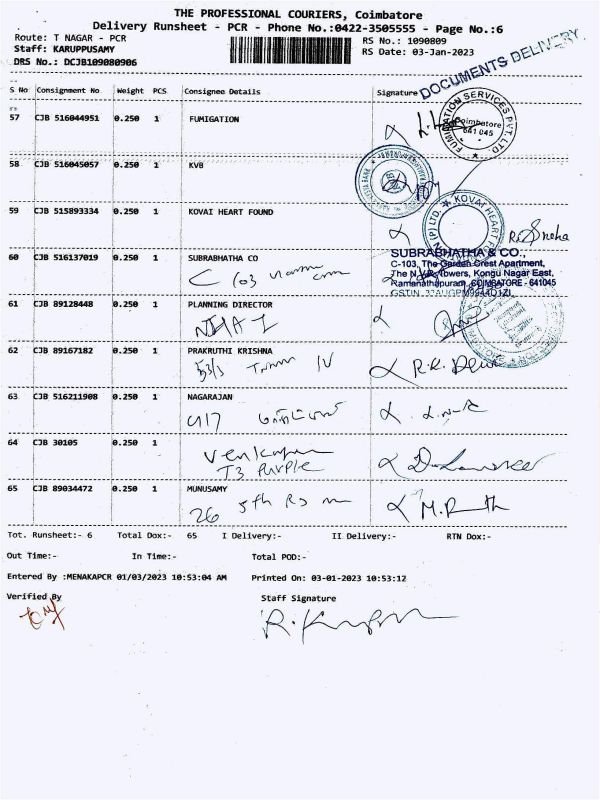 THE PROFESSIONAL COURIERS, Coimbatore
Delivery Runsheet - PCR - Phone No.:0422-3505555 - Page No.:6
Route: T NAGAR - PCR
RS No.: 1090809
Staff: KARUPPUSAMY
RS Date: 03-Jan-2023
DRS No.: DCJB109080906
DOCUMENTS DELIVERY.
S No Consignment No Weight PCS Consignee Details Signature
57 CJB 516044951 0.250 1 FUMIGATION
FUMIGATION SERVICES PVT. LTD
Coimbatore
641 045
58 CJB 516045057 0.250 1 KVB
59 CJB 515893334 0.250 1 KOVAI HEART FOUND
KOVAI HEART
(P) LTD.
R. Sneha
60 CJB 516137019 0.250 1 SUBRABHATHA CO
C 103
SUBRABHATHA & CO.,
C-103, The Garden Crest Apartment,
The N.V.R. Towers, Kongu Nagar East,
Ramanathapuram, COIMBATORE - 641045
61 CJB 89128448 0.250 1 PLANNING DIRECTOR
NHAI
62 CJB 89167182 0.250 1 PRAKRUTHI KRISHNA
53/3 IV
63 CJB 516211908 0.250 1 NAGARAJAN
417
64 CJB 30105 0.250 1
T3 Purple
65 CJB 89034472 0.250 1 MUNUSAMY
26 5th Rd
Tot. Runsheet:- 6 Total Dox:- 65 I Delivery:- II Delivery:- RTN Dox:-
Out Time:- In Time:- Total POD:-
Entered By :MENAKAPCR 01/03/2023 10:53:04 AM Printed On: 03-01-2023 10:53:12
Verified By Staff Signature